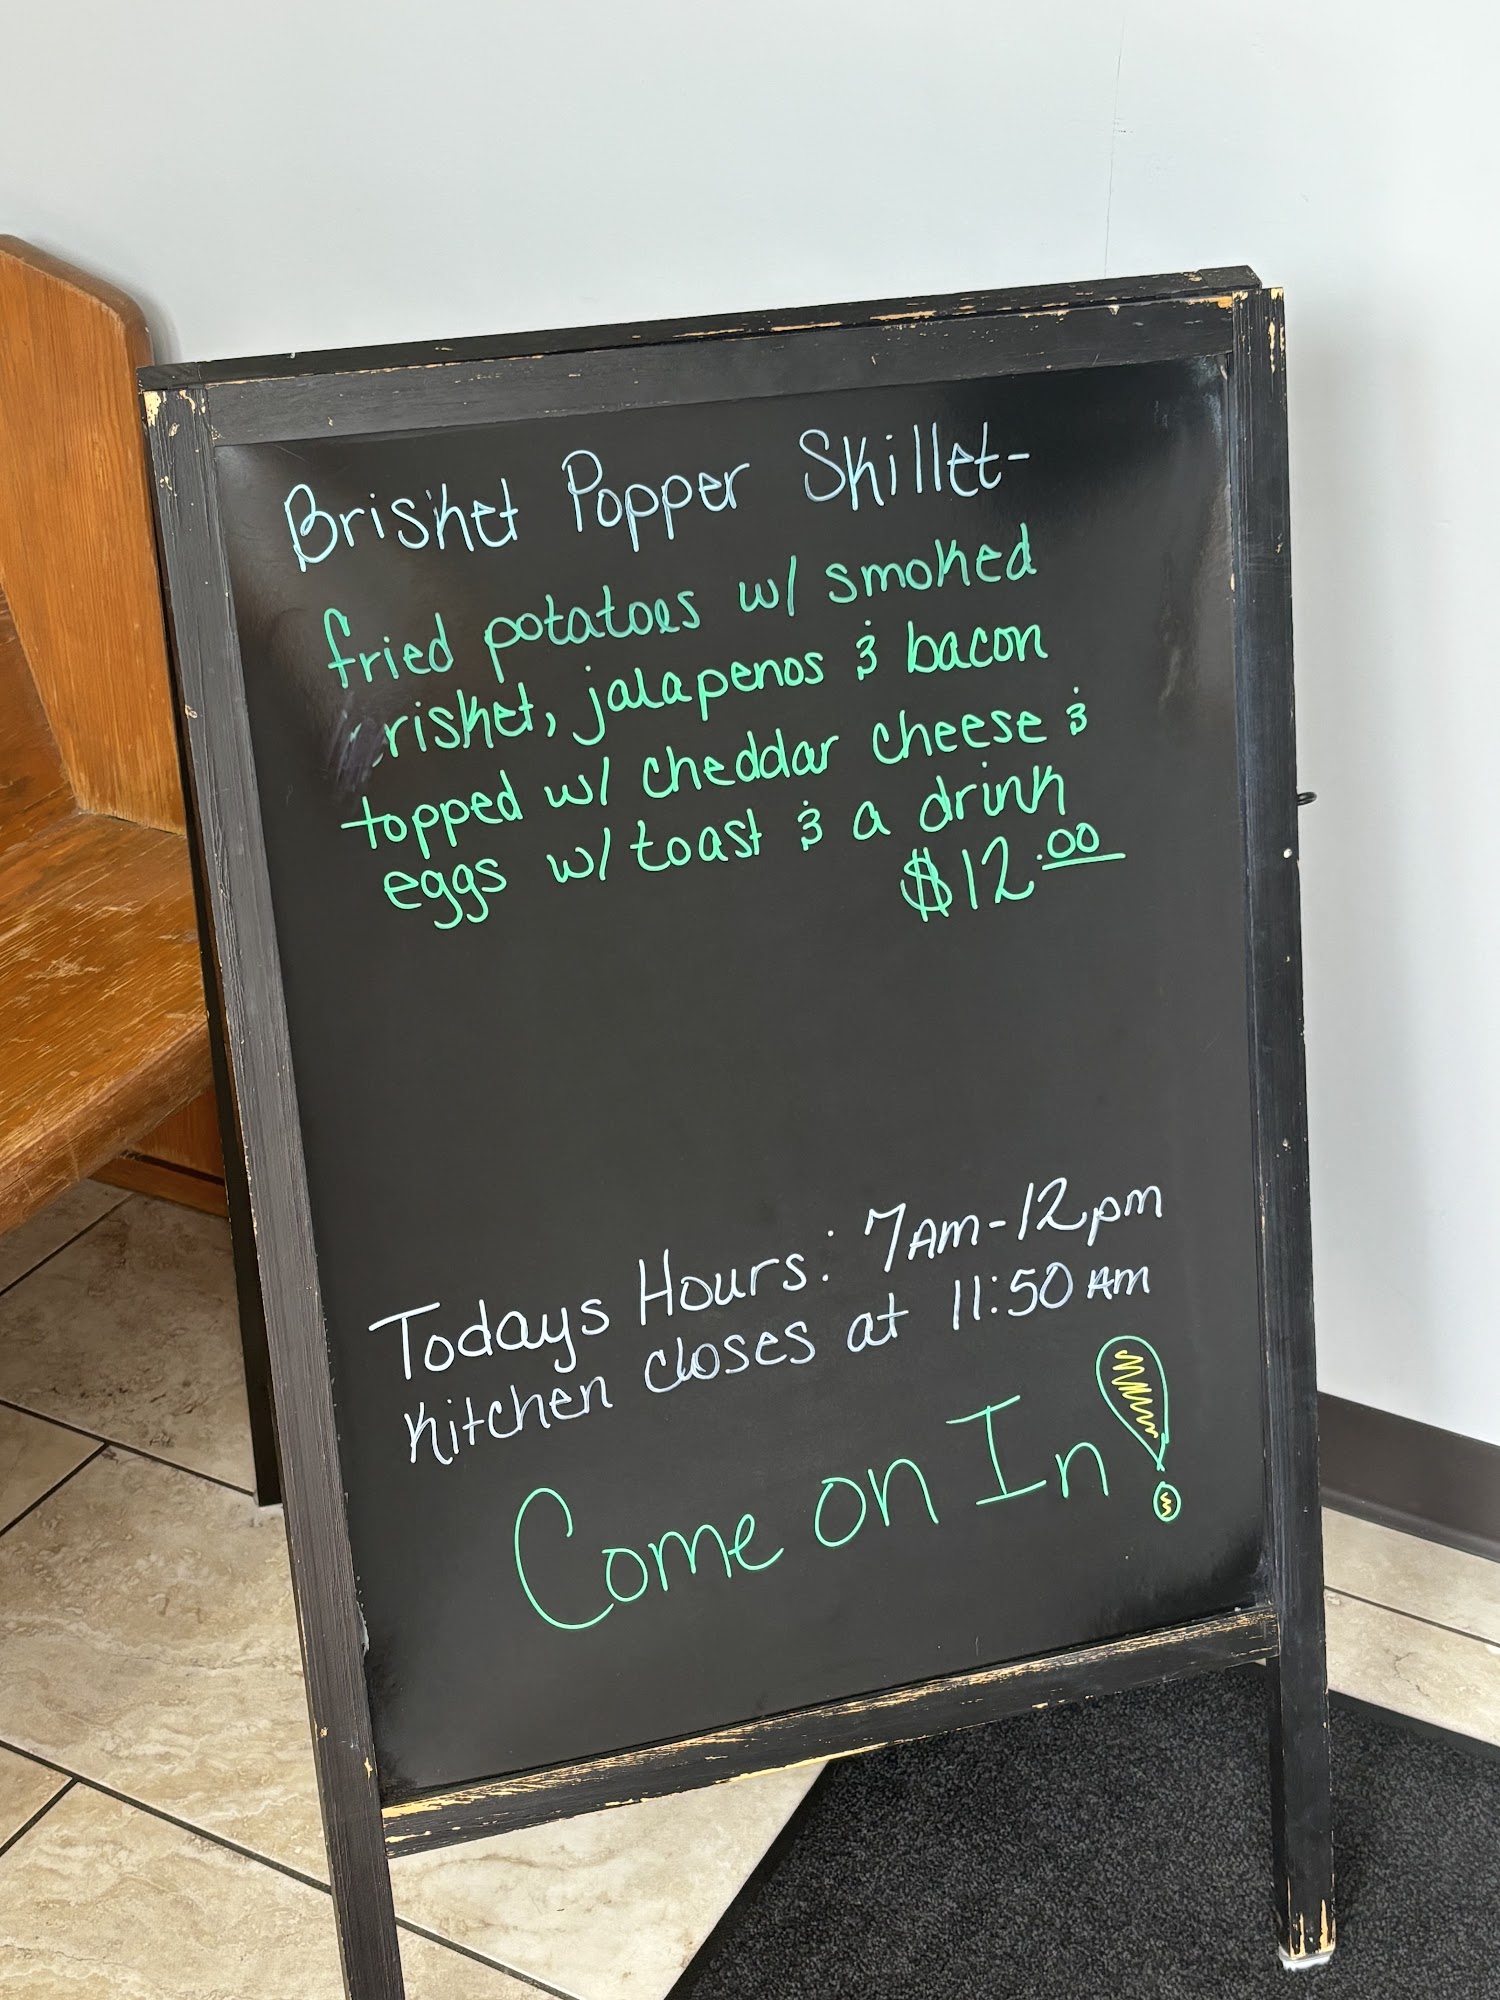 Brisket Popper Skillet-
fried potatoes w/ smoked
risket, jalapenos & bacon
topped w/ cheddar cheese &
eggs w/ toast & a drink
$12.00
Todays Hours: 7AM-12pm
Kitchen closes at 11:50 AM
Come on In!